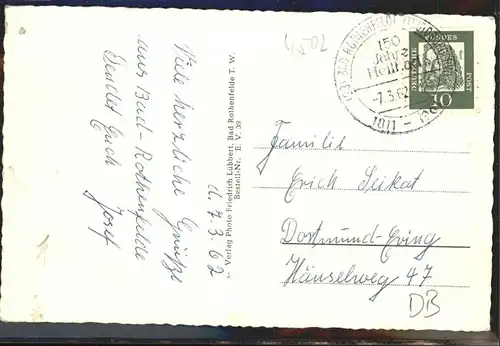 4502
Viele herzliche Grüße
aus Bad-Rothenfelde
sendet Euch Josef
d. 7.3.62
Verlag Photo Friedrich Lübbert, Bad Rothenfelde T. W.
Bestell-Nr. E. V. 39
BAD ROTHENFELDE
150
Jahre
Heilbad
-7.3.62
1811 - 1961
DEUTSCHE BUNDESPOST
10
Familie
Erich Seikat
Dortmund-Eving
Hänselweg 47
DB